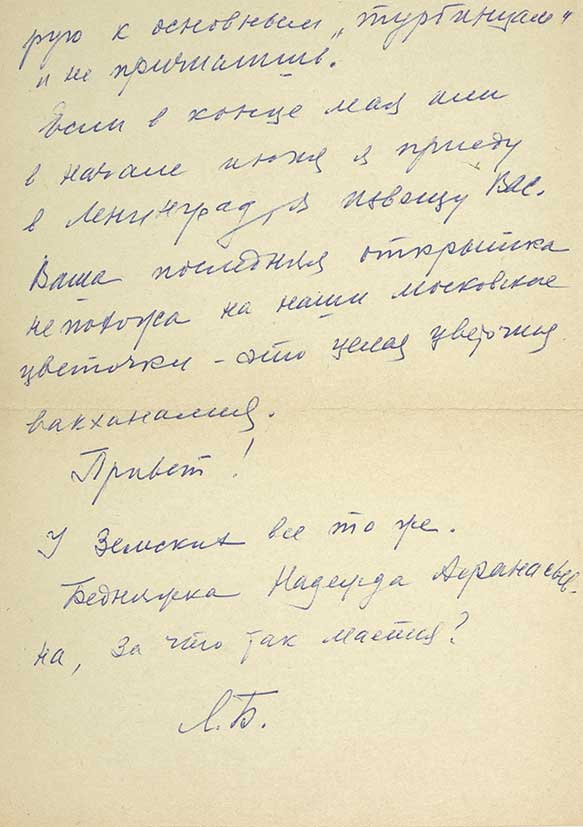 рую к основным „турбинцам"
и не причислишь.
Если в конце мая или
в начале июня я приеду
в Ленинград, я извещу Вас.
Ваша последняя открытка
не похожа на наши московские
цветочки – это целая цветочная
вакханалия.
Привет!
У Земских все то же.
Бедняжка Надежда Афанасьев-
на, за что так мается?
Л.Б.